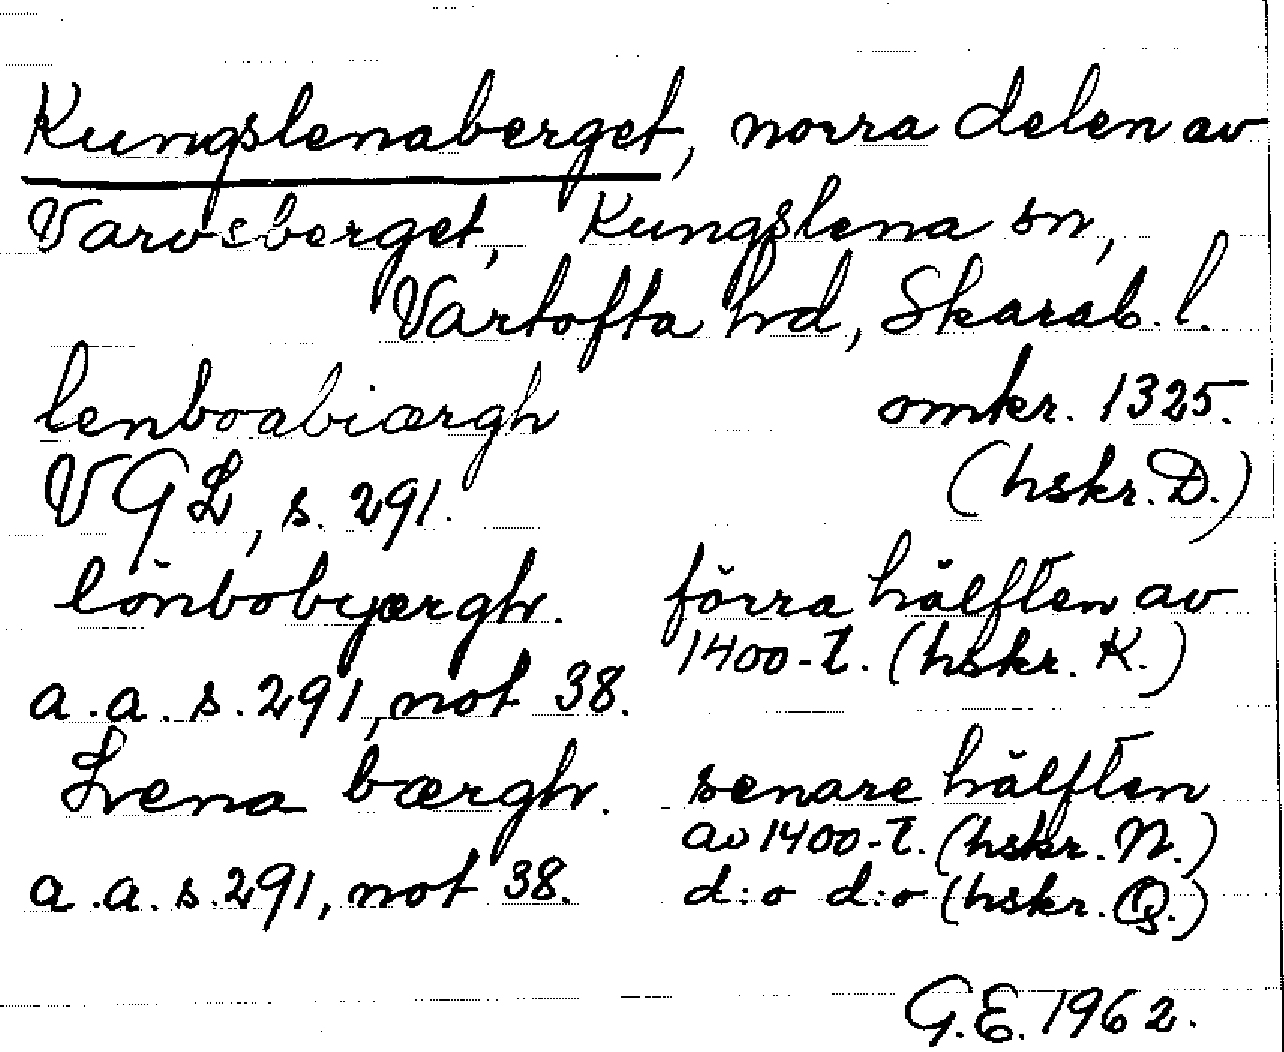 Kungslenaberget, norra delen av
Varvsberget, Kungslena sn,
Vartofta hd, Skarab. l.
lenboabiærgh omkr. 1325.
VGL, s. 291. (hskr. D.)
lönbobyærgh. förra hälften av
1400-t. (hskr. K.)
a.a. s. 291, not 38.
Lvena bærgh. senare hälften
av 1400-t. (hskr. N.)
a.a. s. 291, not 38. d:o d:o (hskr. Q.)
G.E. 1962.